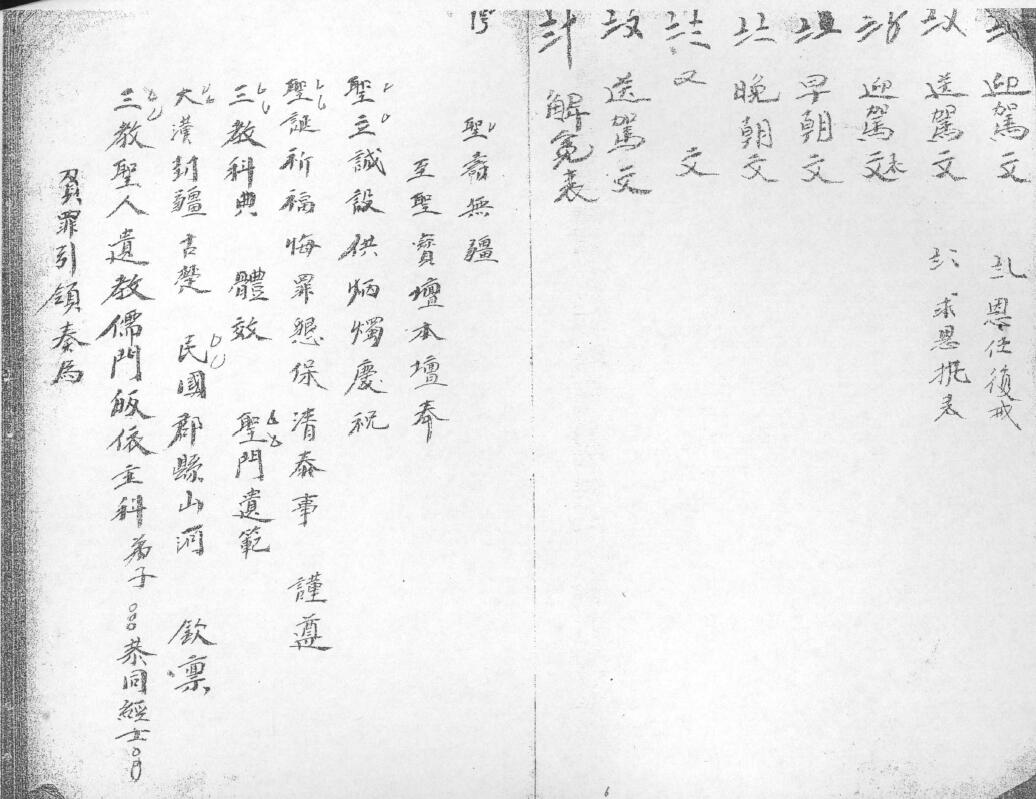 迎駕文
恩任復戒
送駕文
求恩挑表
迎駕文表
早朝文
晚朝文
又 文
送駕文
解冤表
聖壽無疆
至聖寶壇本壇奉
聖立誠設供炳燭慶祝
聖誕祈福悔罪懇保清泰事 謹遵
三教科典 體效 聖門遺範
大漢封疆古楚 民國郡縣山河 欽稟
三教聖人遺教儒門皈依主科弟子 恭同經士
負罪引領奏為